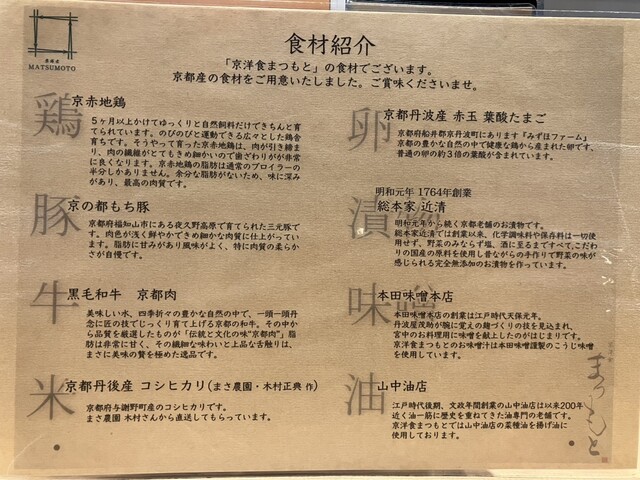 京洋食
MATSUMOTO
食材紹介
「京洋食まつもと」の食材でございます。
京都産の食材をご用意いたしました。ご賞味くださいませ。
鶏
京赤地鶏
5ヶ月以上かけてゆっくりと自然飼料だけできちんと育
てられています。のびのびと運動できる広々とした鶏舎
育ちです。そうやって育った京赤地鶏は、肉が引き締ま
り、肉の繊維がとてもきめ細かいので歯ざわりが非常
に良くなります。京赤地鶏の脂肪は通常のブロイラーの
半分しかありません。余分な脂肪がないため、味に深み
があり、最高の肉質です。
豚
京の都もち豚
京都府福知山市にある夜久野高原で育てられた三元豚で
す。肉色が浅く鮮やかできめ細かな肉質に仕上がってい
ます。脂肪に甘みがあり風味がよく、特に肉質の柔らか
さが自慢です。
牛
黒毛和牛 京都肉
美味しい水、四季折々の豊かな自然の中で、一頭一頭丹
念に匠の技でじっくり育て上げる京都の和牛。その中か
ら品質を厳選したものが「伝統と文化の味"京都肉"」。脂
肪は非常に甘く、その繊細な味わいと上品な舌触りは、
まさに美味の贅を極めた逸品です。
米
京都丹後産 コシヒカリ(まさ農園・木村正典 作)
京都府与謝野町産のコシヒカリです。
まさ農園 木村さんから直送してもらっています。
卵
京都丹波産 赤玉 葉酸たまご
京都府船井郡京丹波町にあります「みずほファーム」
京都の豊かな自然の中で健康な鶏から産まれた卵です、
普通の卵の約3倍の葉酸が含まれています。
漬物
明和元年 1764年創業
総本家 近清
明和元年から続く京都老舗のお漬物です。
総本家近清では創業以来、化学調味料や保存料は一切使
用せず、野菜のみならず塩、酒に至るまですべて、こだわ
りの国産の原料を使用し昔ながらの手作りで野菜の味が
感じられる完全無添加のお漬物を作っています。
味噌
本田味噌本店
本田味噌本店の創業は江戸時代天保元年。
丹波屋茂助が腕に覚えの麹づくりの技を見込まれ、
宮中のお料理用に味噌を献上したのがはじまりです。
京洋食まつもとのお味噌汁は本田味噌謹製のこうじ味噌
を使用しています。
油
山中油店
江戸時代後期、文政年間創業の山中油店は以来200年
近く油一筋に歴史を重ねてきた油専門の老舗です。
京洋食まつもとでは山中油店の菜種油を揚げ油に
使用しております。
京洋食
まつもと